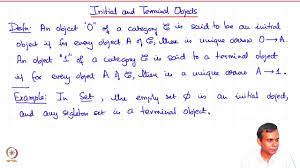 Initial and Terminal Objects
Defn: An object "0" of a category C is said to be an initial
object if for every object A of C, there is unique arrow 0→A.
An object "1" of a category C is said to a terminal object
is for every object A of C, there is a unique arrow A→1.
Example: In Set, the empty set ϕ is an initial object,
and any singleton set is a terminal object.